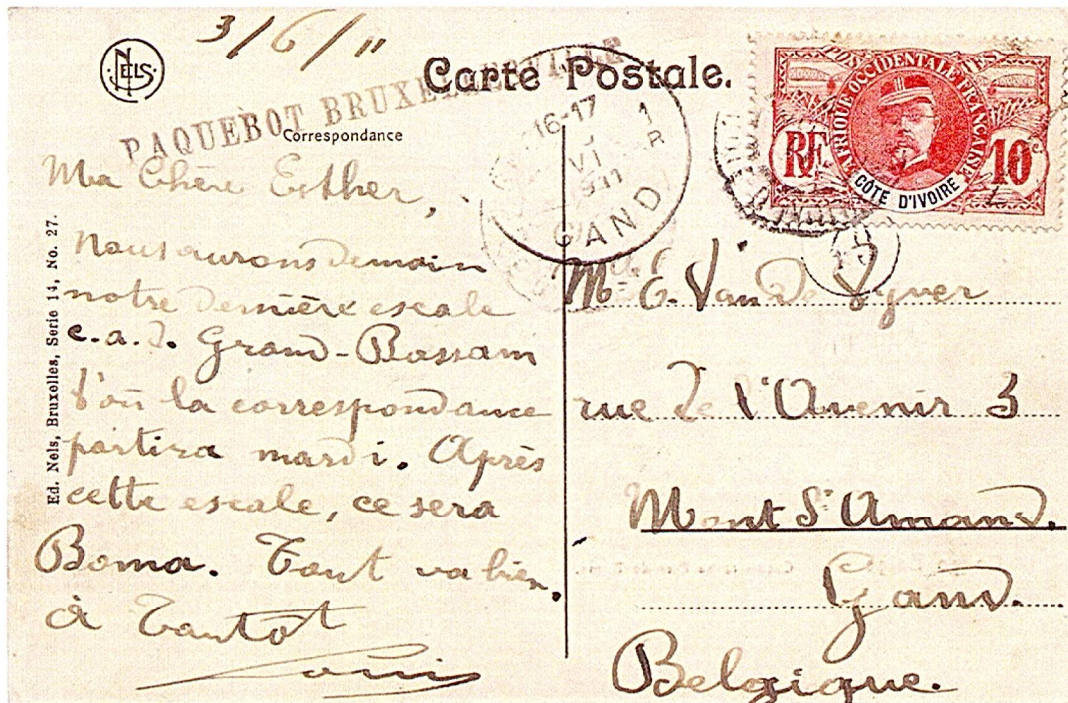 3/6/11
NELS
Carte Postale.
PAQUEBOT BRUXELLESVILLE
Correspondance
16-17
1
VI
R
1911
GAND
POSTES
AFRIQUE OCCIDENTALE FRANÇAISE
RF
10c
CÔTE D'IVOIRE
Ed. Nels, Bruxelles, Serie 14, No. 27.
Ma Chère Esther,
Nous aurons demain
notre dernière escale
c.a.d. Grand-Bassam
d'où la correspondance
partira mardi. Après
cette escale, ce sera
Boma. Tout va bien.
à Tantôt
Louis
E. Van De Vyver
rue de l'Avenir 3
Mont St Amand.
Gand.
Belgique.